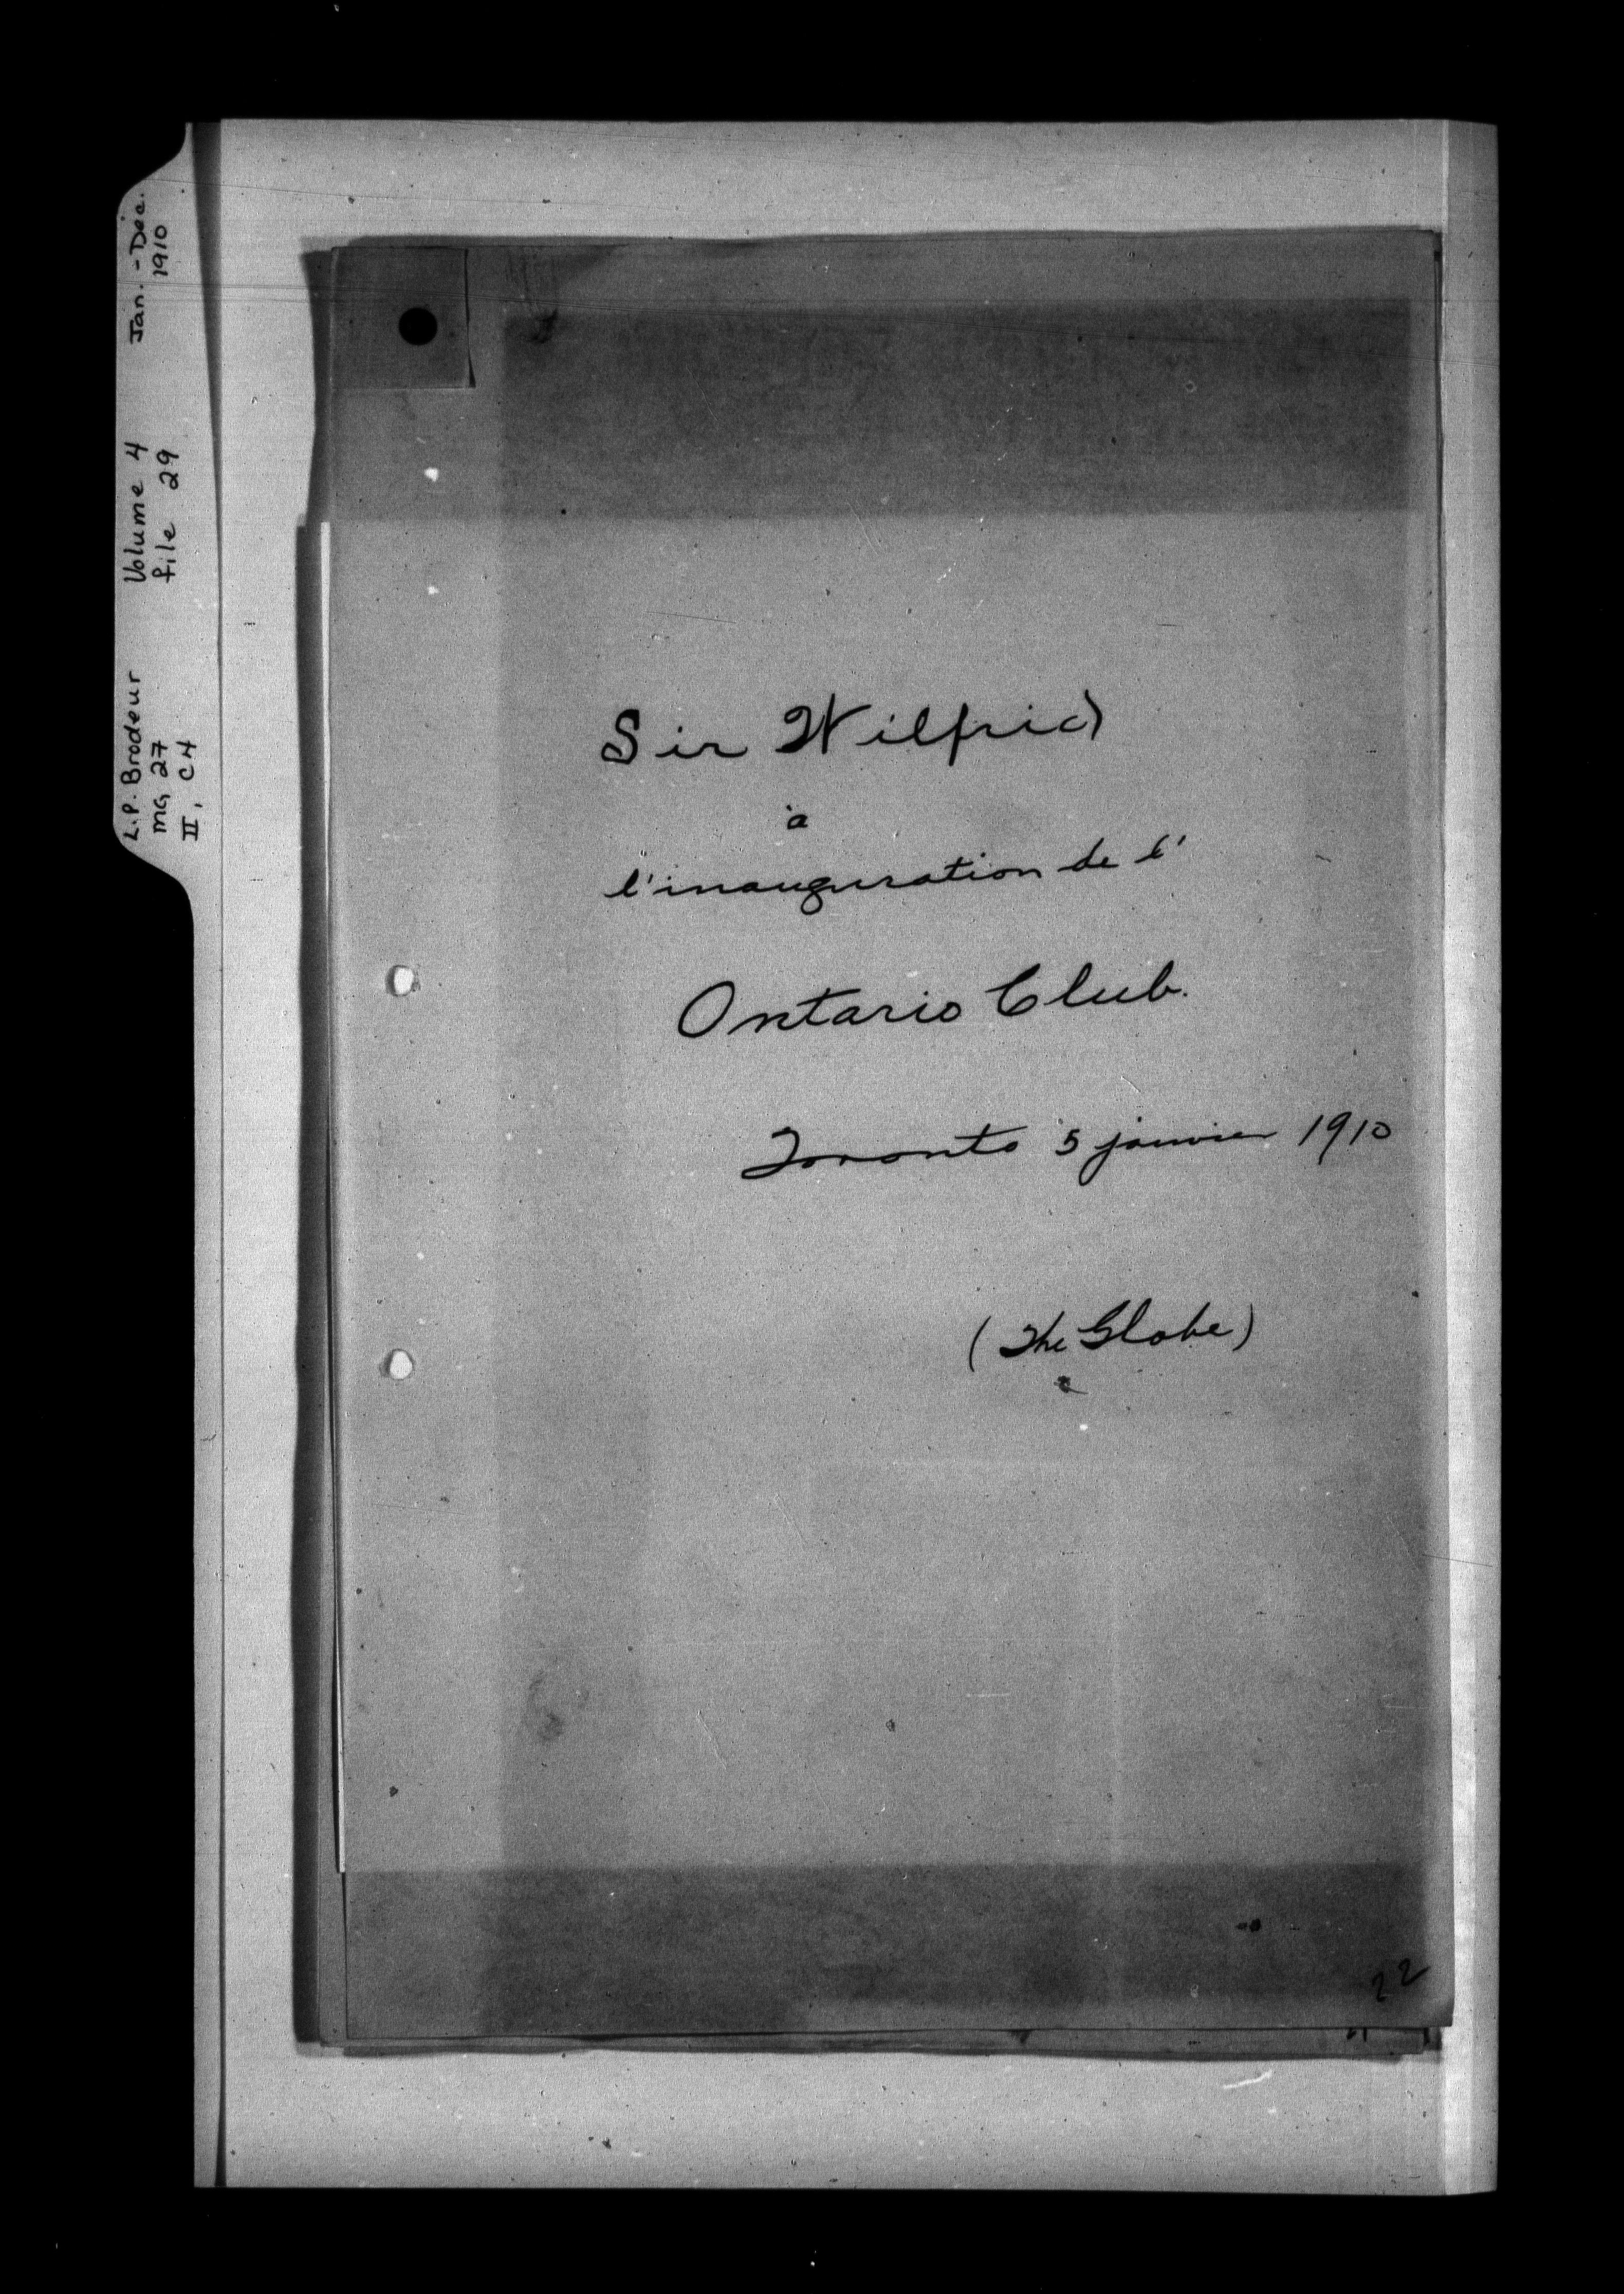 L.P. Brodeur Volume 4 Jan. - Dec.
MG 27 file 29 1910
II, C4
Sir Wilfrid
à
l'inauguration de l'
Ontario Club.
Toronto 5 janvier 1910
(The Globe)
22